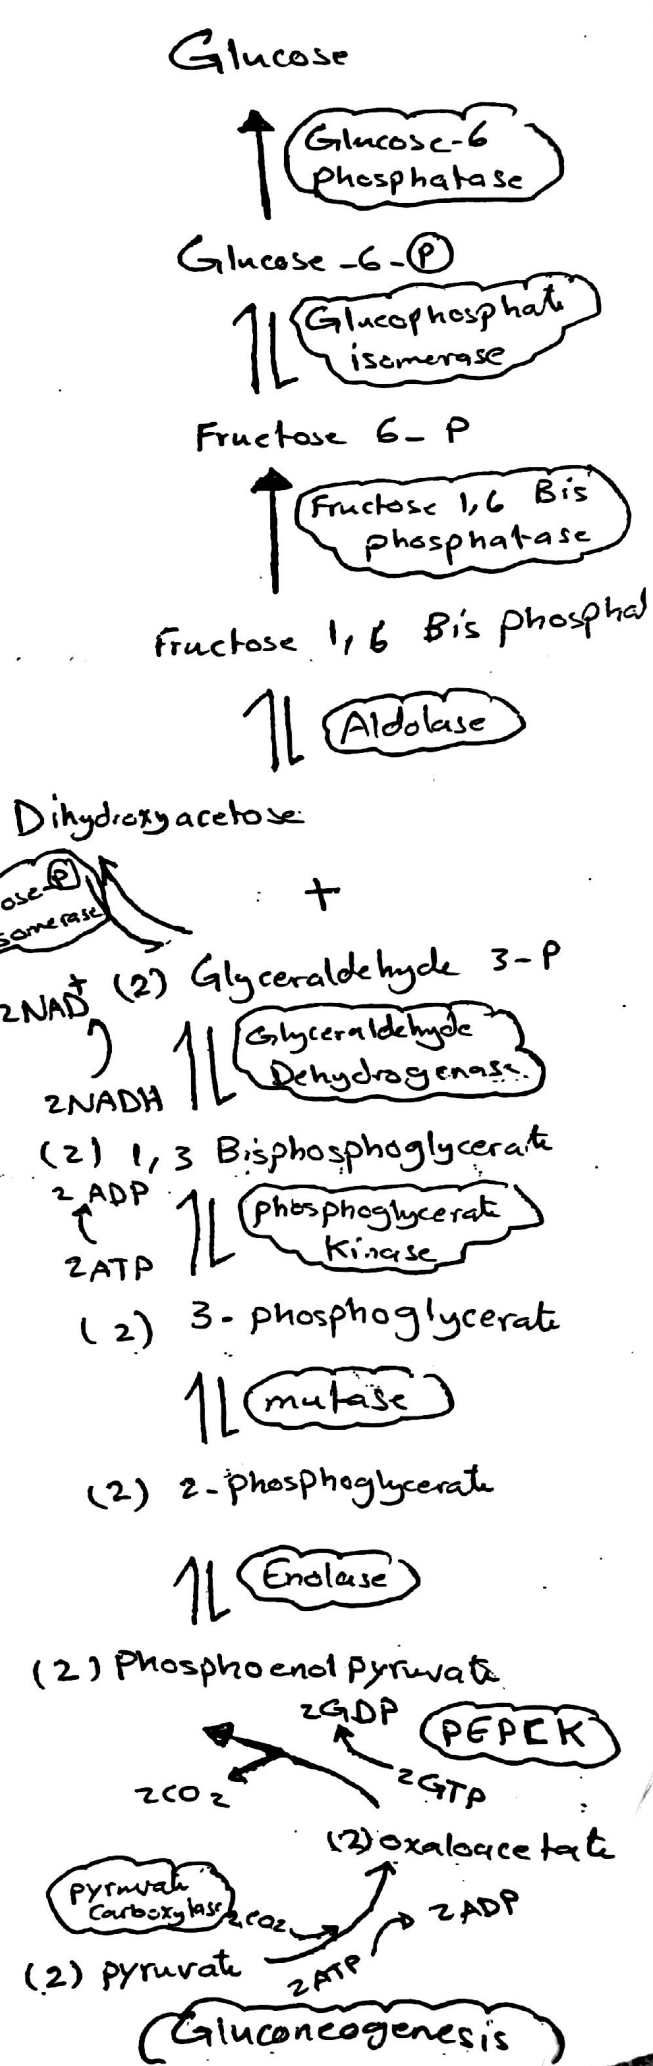 Glucose
Glucose-6
phosphatase
Glucose-6-P
Glucophosphate
isomerase
Fructose 6-P
Fructose 1,6 Bis
phosphatase
Fructose 1,6 Bis phosphat
Aldolase
Dihydroxyacetose
ose-P
somerase
+
2NAD+ (2) Glyceraldehyde 3-P
Glyceraldehyde
Dehydrogenase
2NADH
(2) 1,3 Bisphosphoglycerate
2 ADP
phosphoglycerate
Kinase
2ATP
(2) 3-phosphoglycerate
mutase
(2) 2-phosphoglycerate
Enolase
(2) Phosphoenol pyruvate
2GDP
PEPCK
2CO2
2GTP
(2) oxaloacetate
pyruvate
Carboxylase
2CO2
2ADP
(2) pyruvate
2ATP
Gluconeogenesis